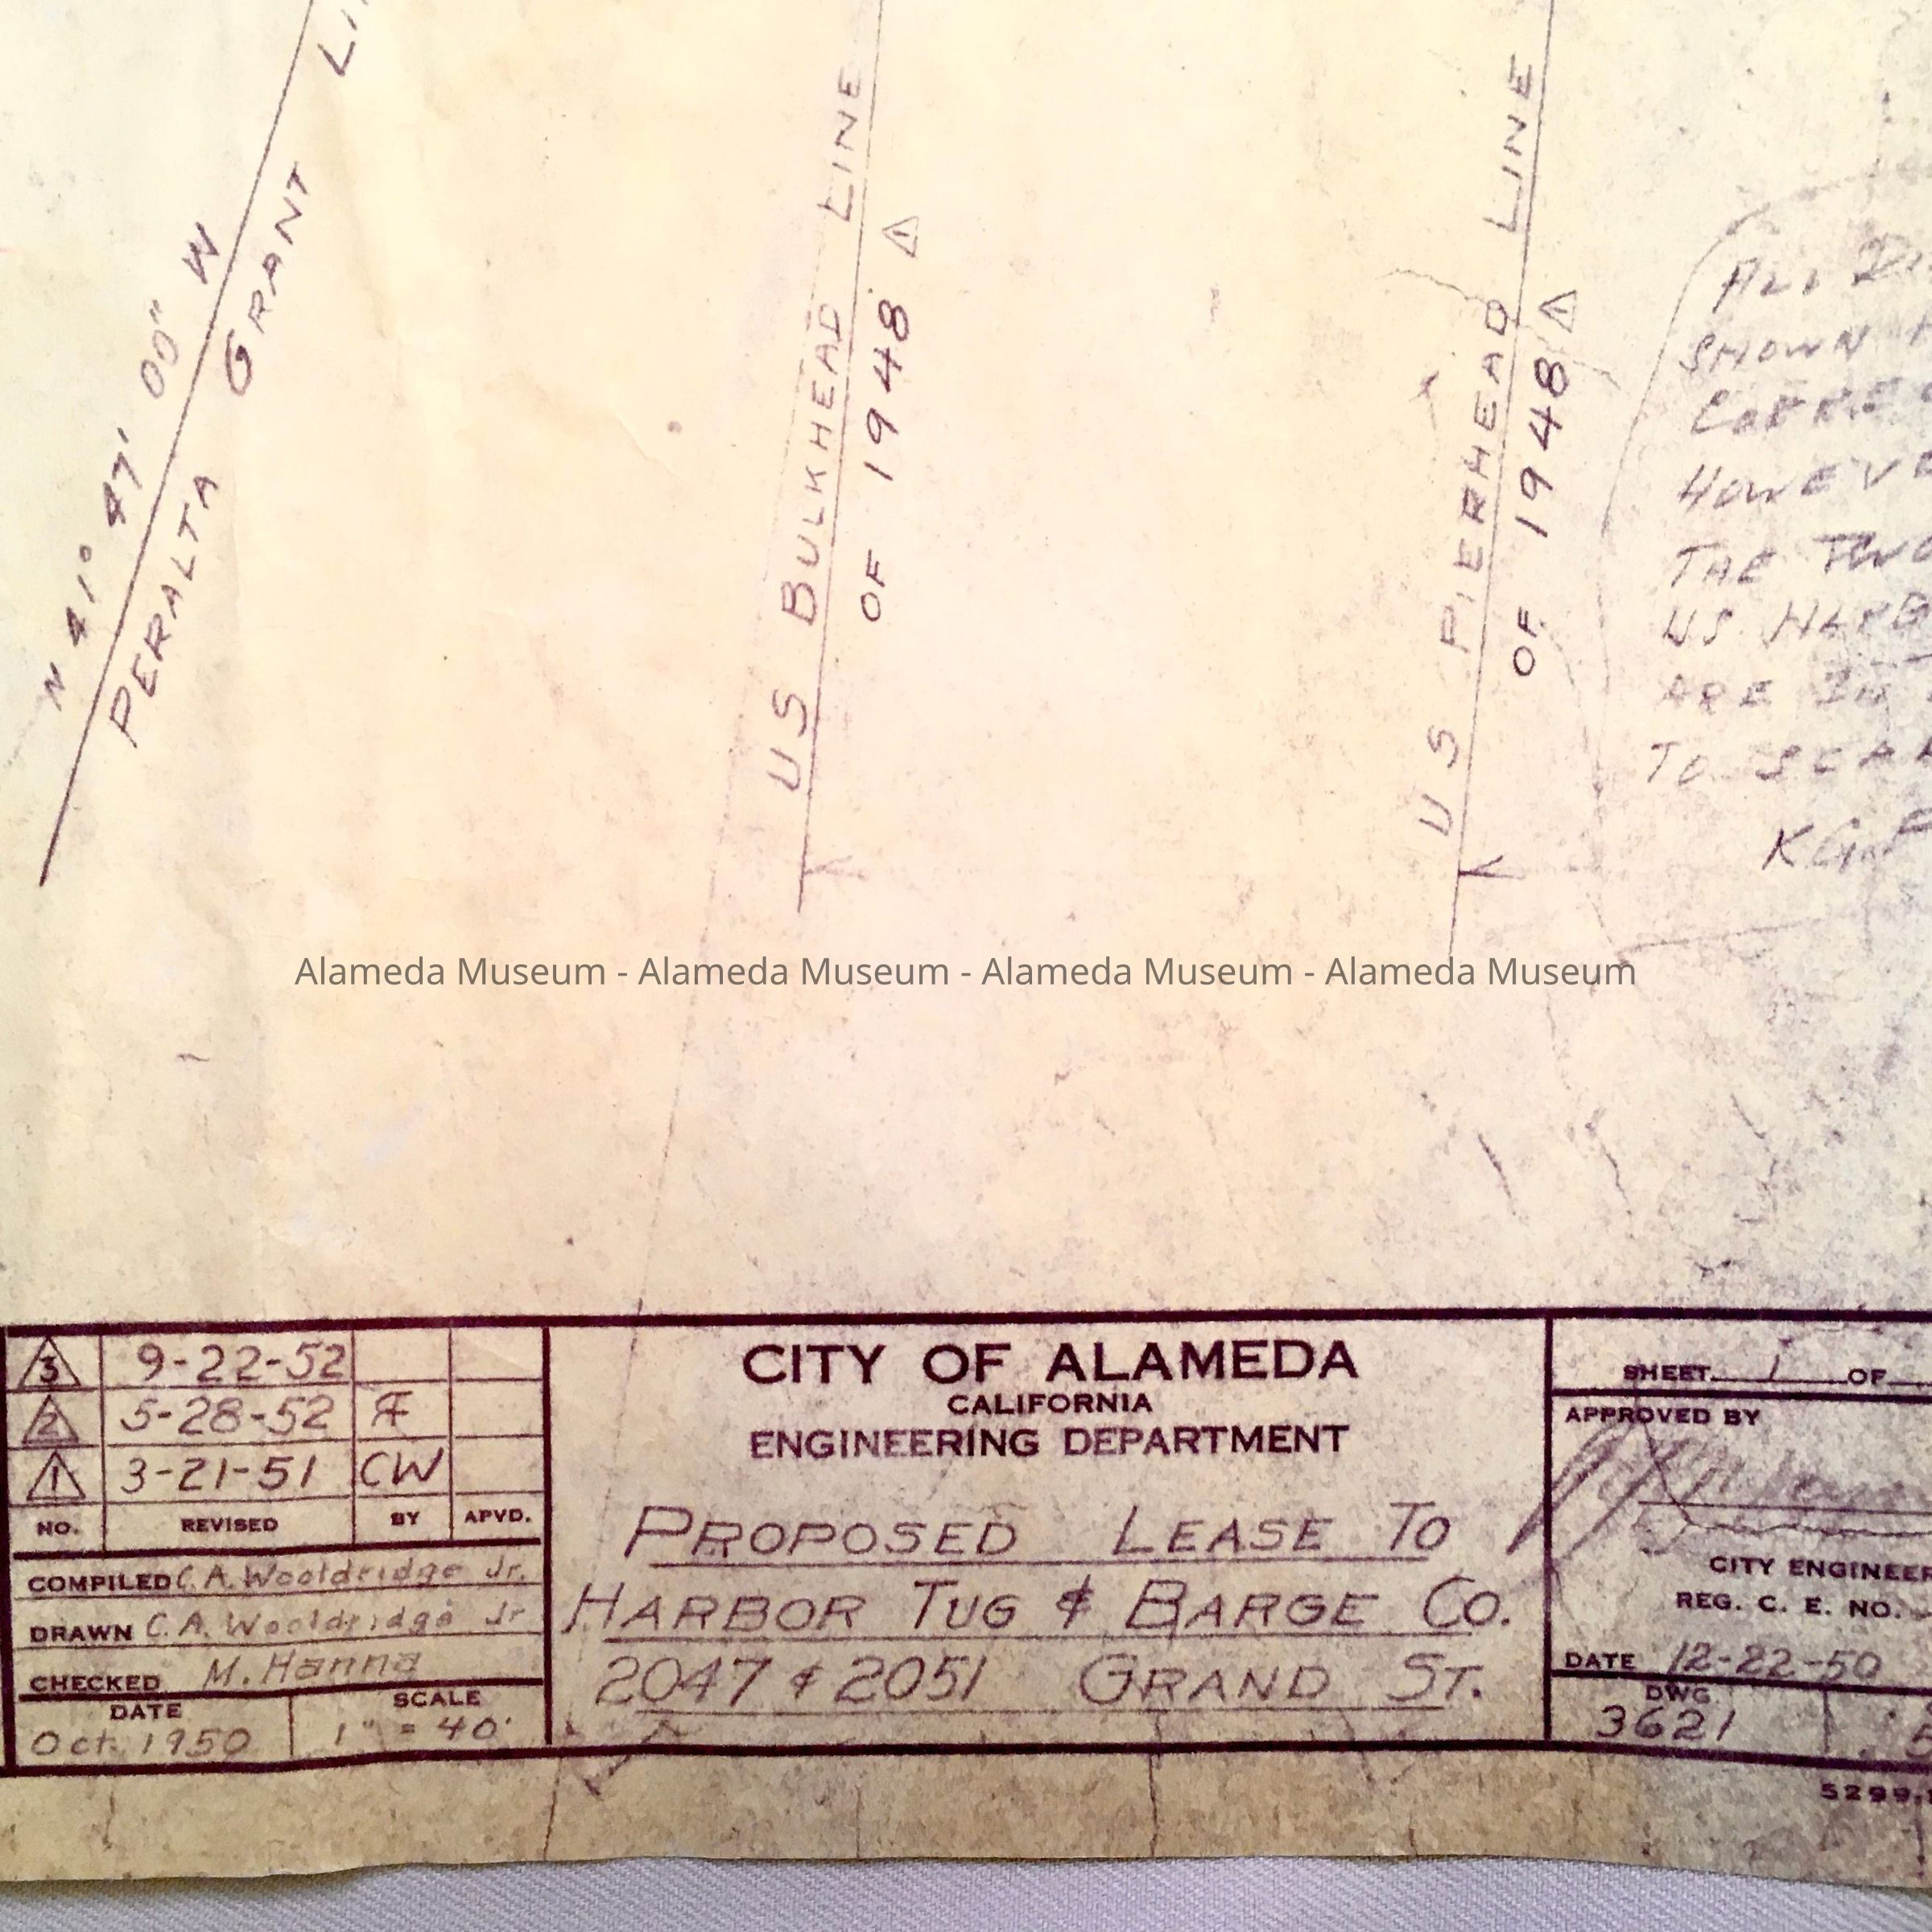 LI
N 41° 47' 00" W
PERALTA GRANT
US BULKHEAD LINE
OF 1948 1
US PIERHEAD LINE
OF 1948 1
ALL
SHOWN
HOWEVE
THE TWO
US HARB
ARE IN
TO SCAL
Alameda Museum - Alameda Museum - Alameda Museum - Alameda Museum
3 9-22-52
2 5-28-52
1 3-21-51 CW
NO. REVISED BY APVD.
COMPILED C. A. Wooldridge Jr.
DRAWN C. A. Wooldridge Jr
CHECKED M. Hanna
DATE SCALE
Oct. 1950 1" = 40'
CITY OF ALAMEDA
CALIFORNIA
ENGINEERING DEPARTMENT
PROPOSED LEASE TO
HARBOR TUG & BARGE CO.
2047 & 2051 GRAND ST.
SHEET 1 OF
APPROVED BY
CITY ENGINEER
REG. C. E. NO.
DATE 12-22-50
DWG
3621
5299